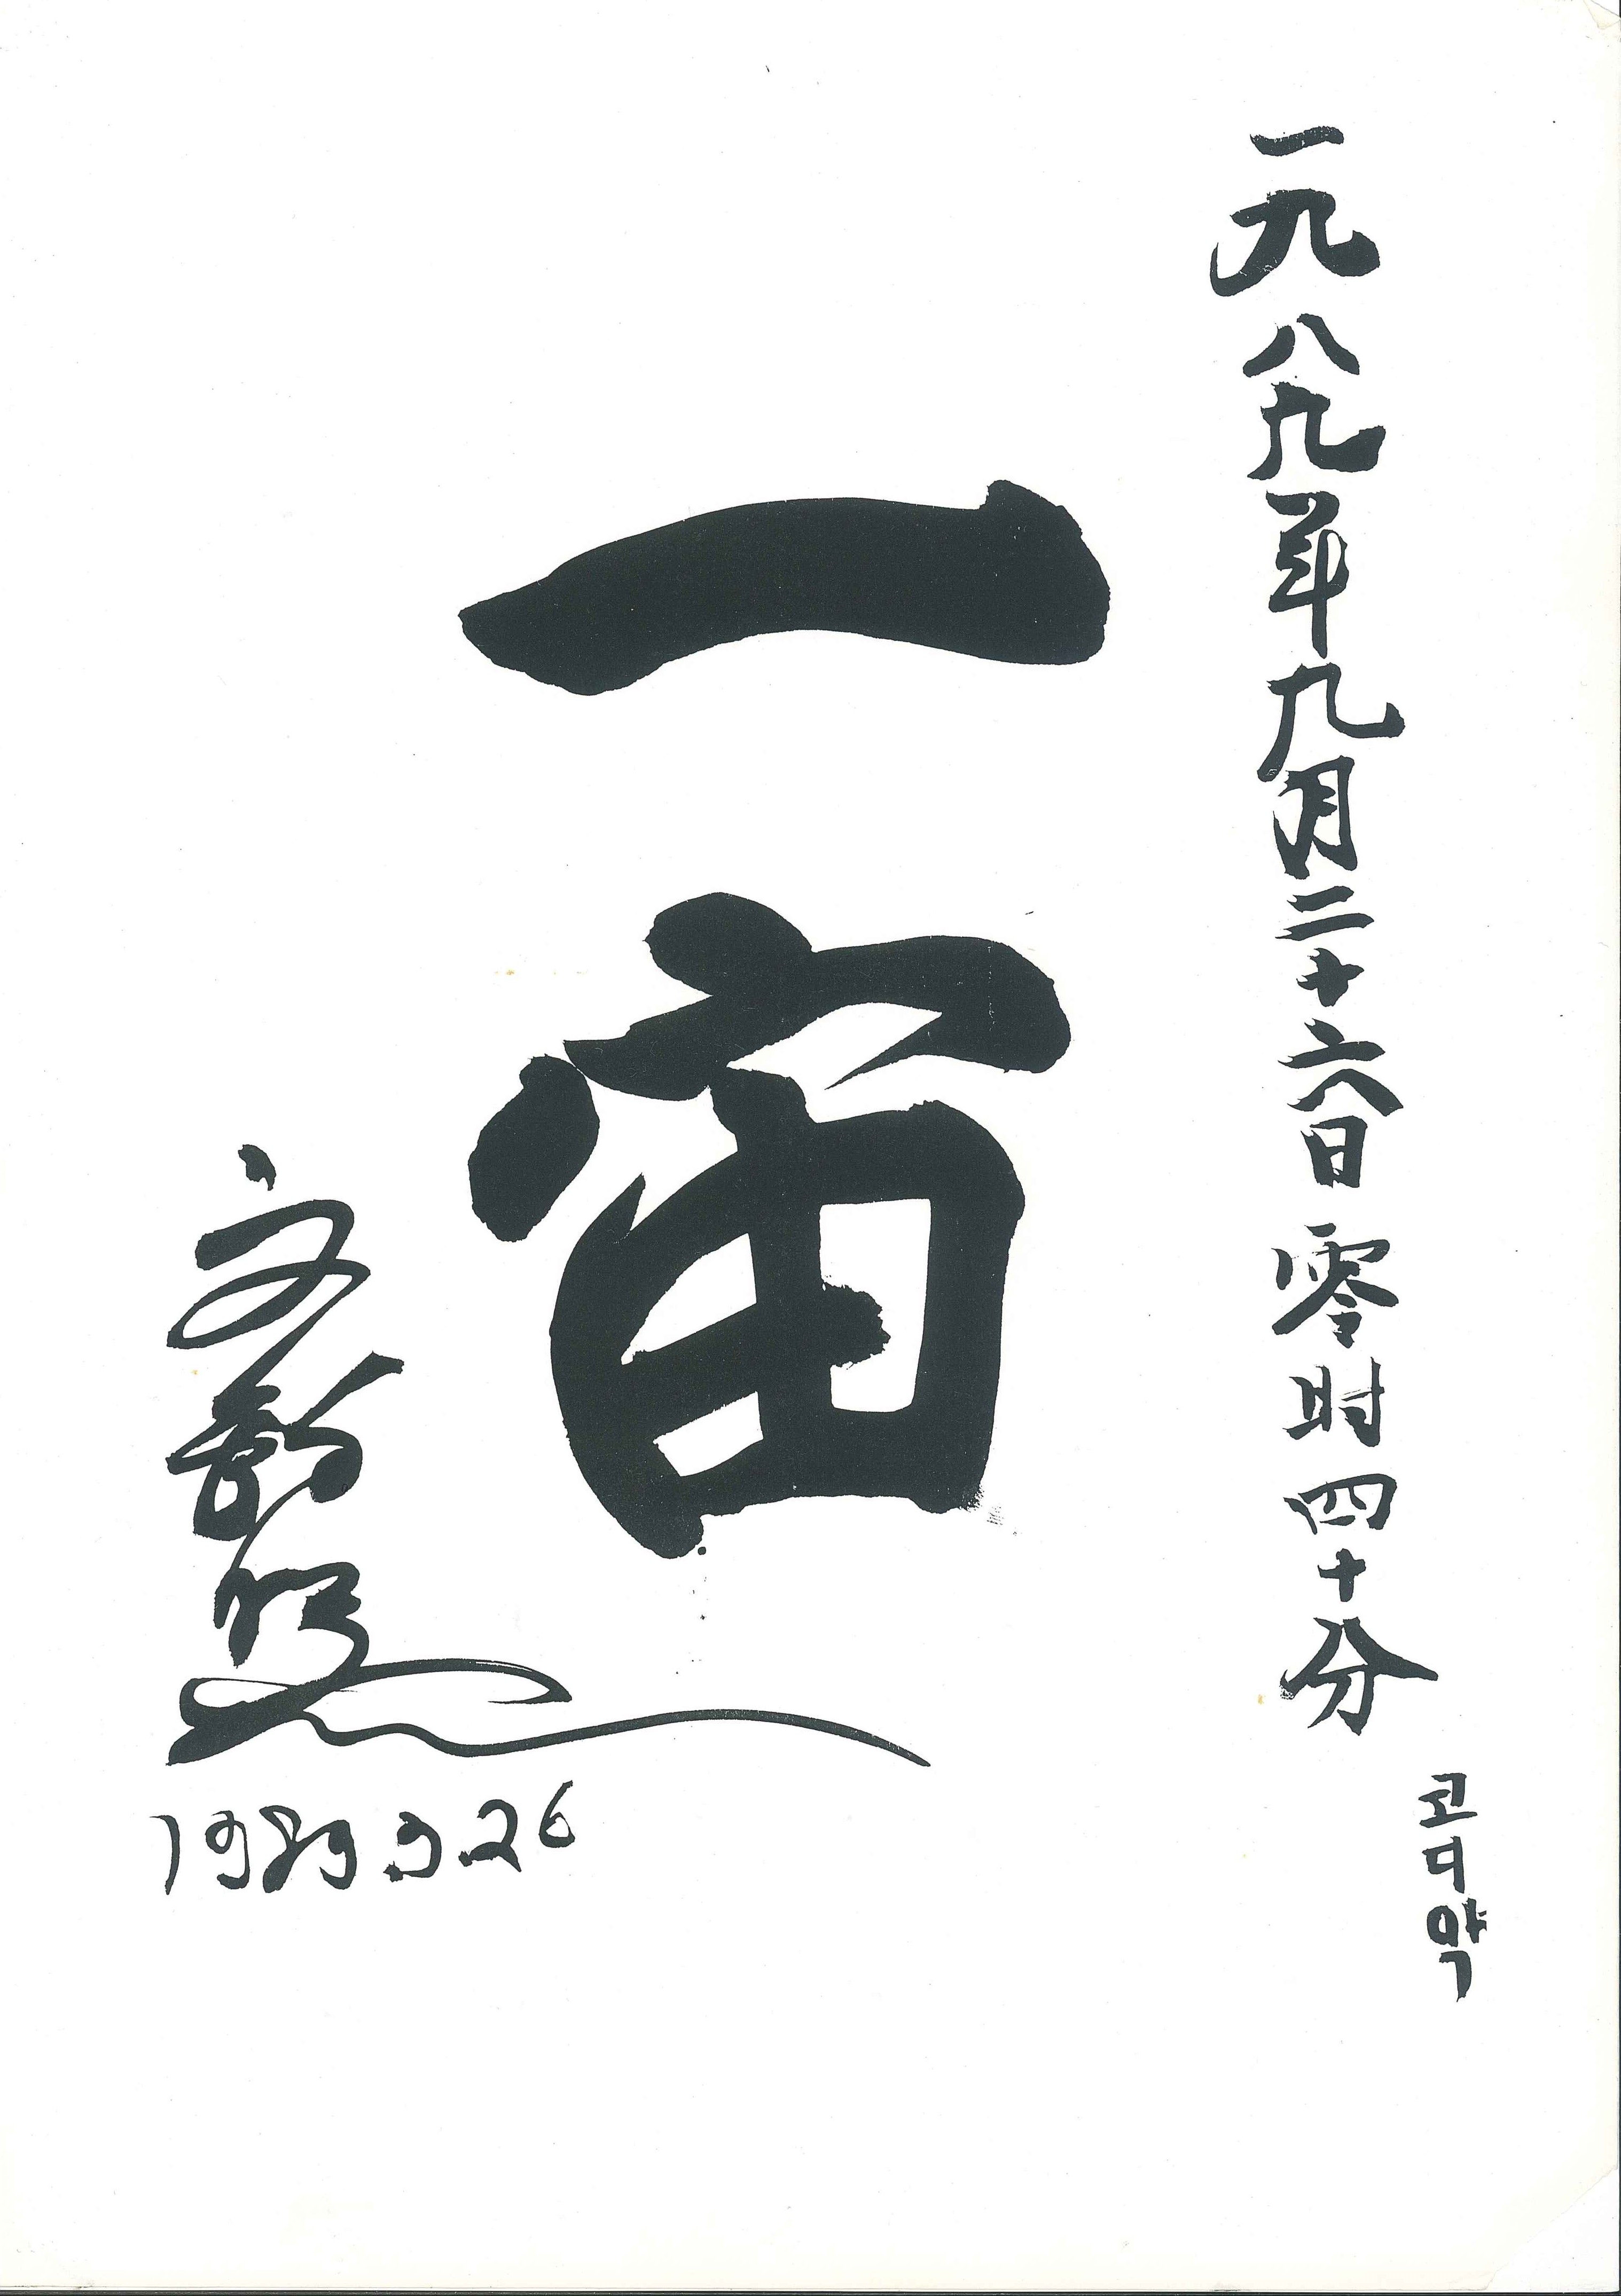 一九八九年九月二十六日 零时四十分
코디악
一宙
文鮮明
1989.9.26